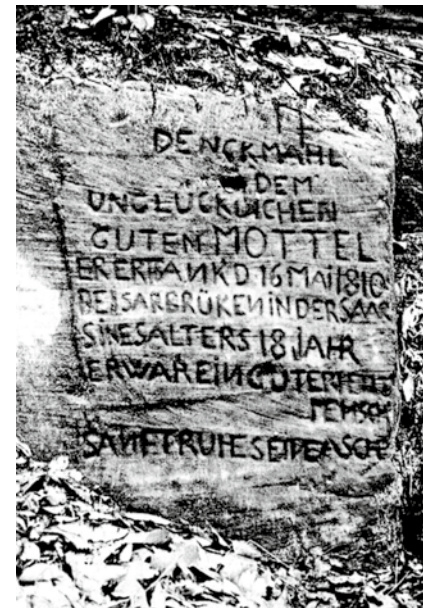 DENCKMAHL
DEM
UNGLÜCKLICHEN
GUTEN MOTTEL
ER ERTRANK D 16 MAI 1810
BEI SARBRÜKEN IN DER SAAR
SINES ALTERS 18 JAHR
ER WAR EIN GUTER
SANFT RUHE